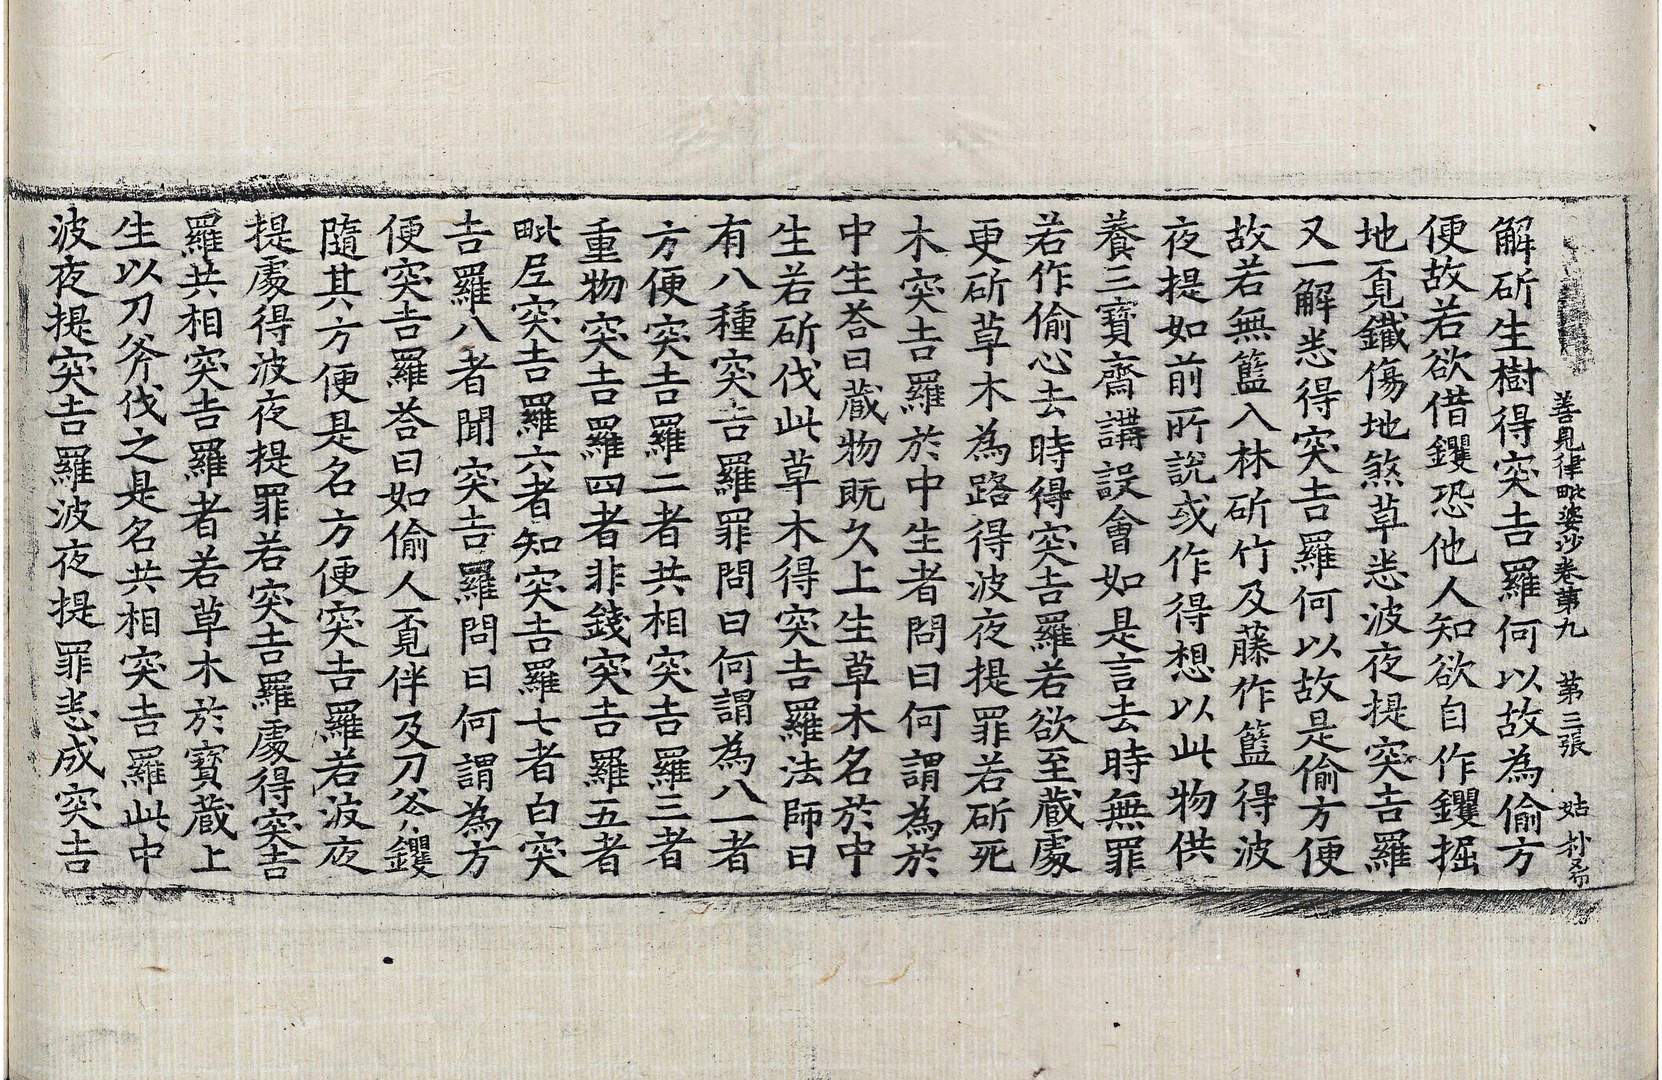 善見律毗婆沙卷第九　第三張　姑
解斫生樹得突吉羅何以故為偷方
便故若欲借钁恐他人知欲自作钁掘
地覔鐵傷地煞草恙波夜提突吉羅
又一解恙得突吉羅何以故是偷方便
故若無籃入林斫竹及藤作籃得波
夜提如前所說或作得想以此物供
養三寶齋講設會如是言去時無罪
若作偷心去時得突吉羅若欲至蔵處
更斫草木為路得波夜提罪若斫死
木突吉羅於中生者問曰何謂為於
中生荅曰蔵物既久上生草木名於中
生若斫伐此草木得突吉羅法師曰
有八種突吉羅罪問曰何謂為八一者
方便突吉羅二者共相突吉羅三者
重物突吉羅四者非錢突吉羅五者
毗尼突吉羅六者知突吉羅七者白突
吉羅八者聞突吉羅問曰何謂為方
便突吉羅荅曰如偷人覔伴及刀斧钁
隨其方便是名方便突吉羅若波夜
提處得波夜提罪若突吉羅處得突吉
羅共相突吉羅者若草木於寶蔵上
生以刀斧伐之是名共相突吉羅此中
波夜提突吉羅波夜提罪恙成突吉